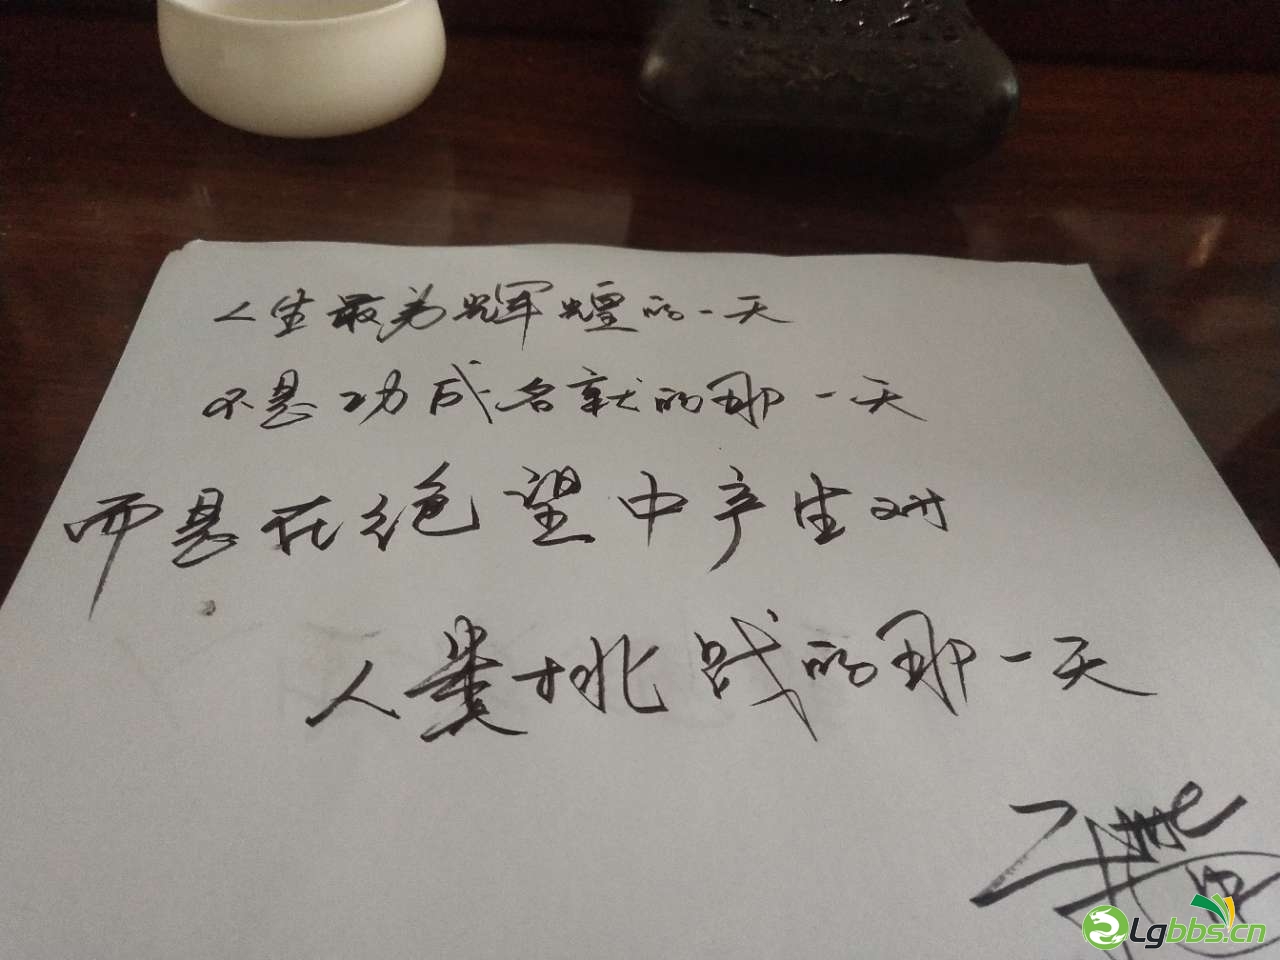 人生最为辉煌的一天
不是功成名就的那一天
而是在绝望中产生对
人类挑战的那一天
Lgbbs.cn